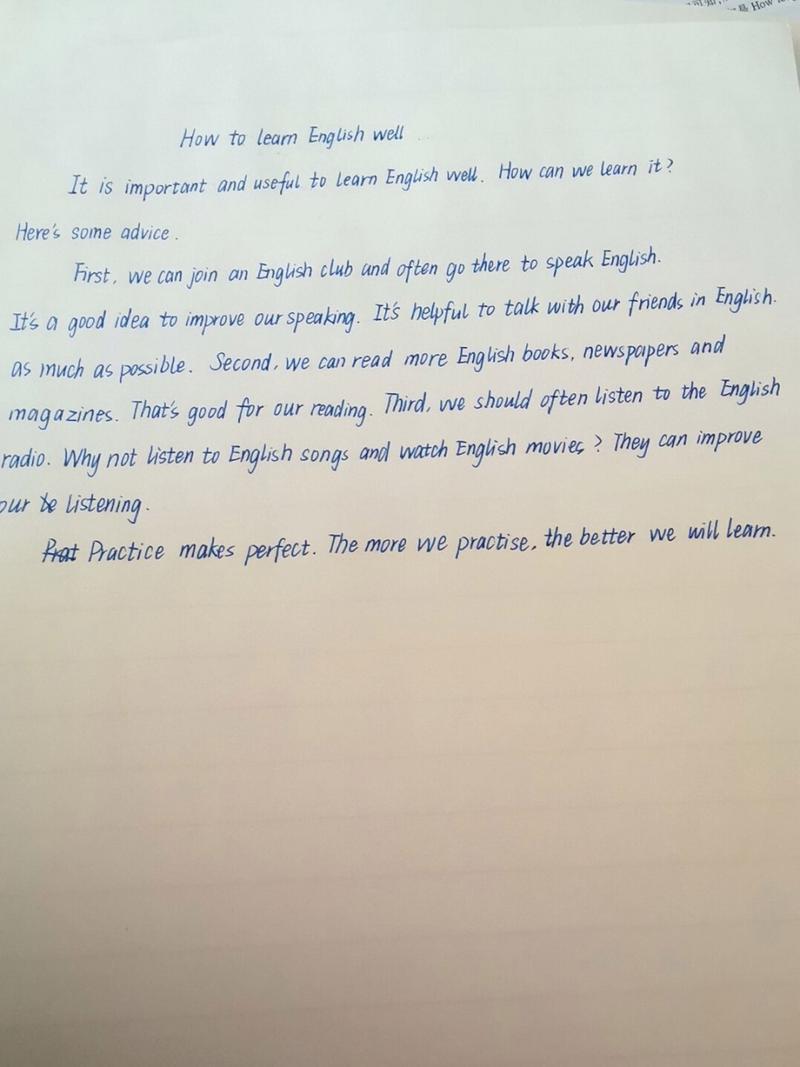 How to learn English well
It is important and useful to learn English well. How can we learn it?
Here's some advice.
First, we can join an English club and often go there to speak English.
It's a good idea to improve our speaking. It's helpful to talk with our friends in English.
as much as possible. Second, we can read more English books, newspapers and
magazines. That's good for our reading. Third, we should often listen to the English
radio. Why not listen to English songs and watch English movies? They can improve
our listening.
Practice makes perfect. The more we practise, the better we will learn.